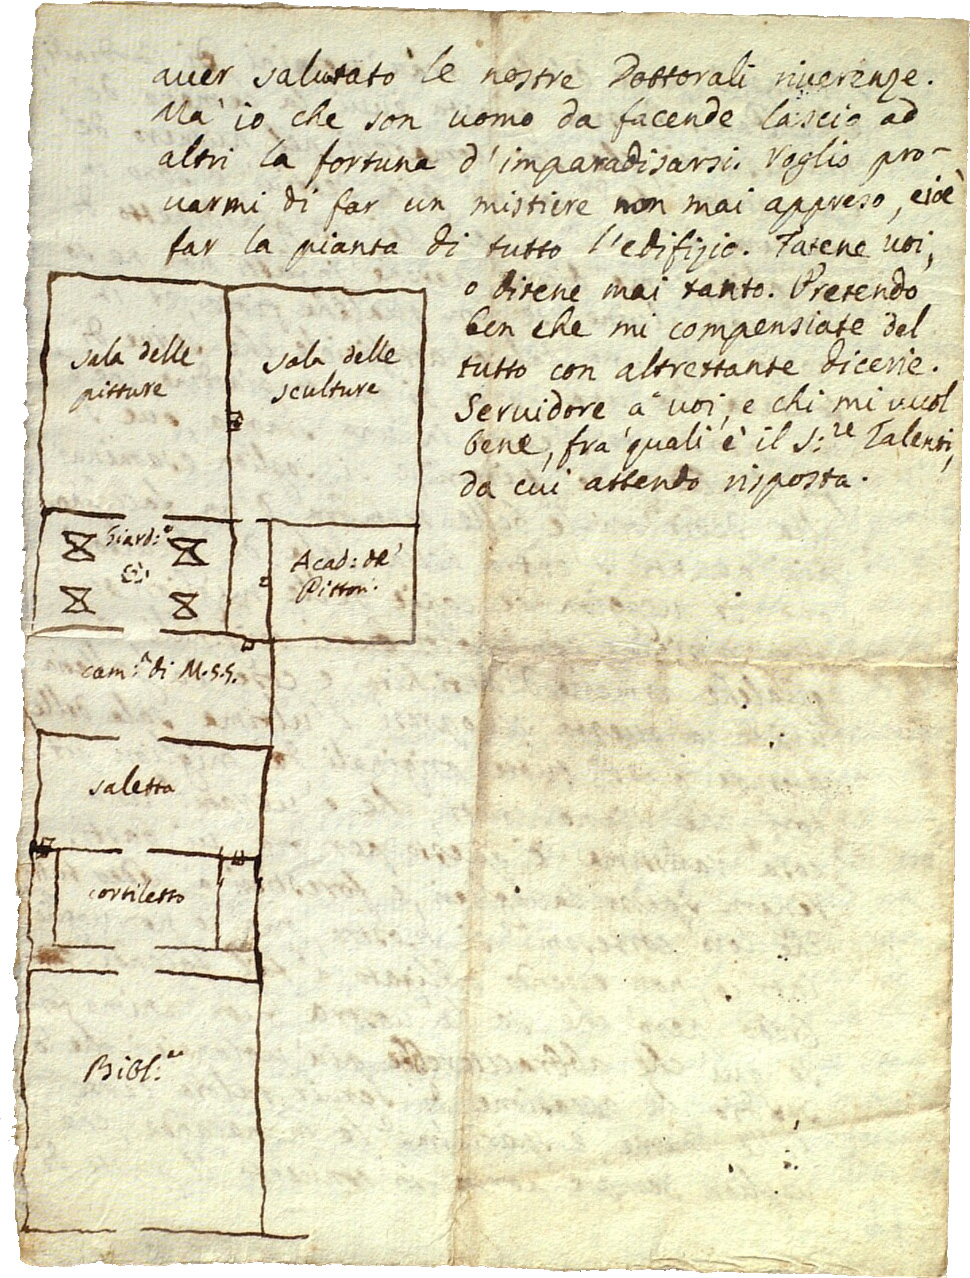 aver salutato le nostre Dottorali riverenze.
Mà io che son uomo da facende lascio ad
altri la fortuna d'imparadisarsi. Voglio pro-
varmi di far un mistiere non mai appreso, cioè
far la pianta di tutto l'edifizio. Tatene voi,
o ditene mai tanto. Pretendo
ben che mi compensiate del
tutto con altrettante dicerie.
Servidore à voi, e chi mi vuol
bene, fra' quali è il S:re Talenti,
da cui attendo risposta.
sala delle
pitture
sala delle
sculture
Giard:o
Acad: de'
Pittori
cam:a di M.S.S.
saletta
cortiletto
Bibl:a